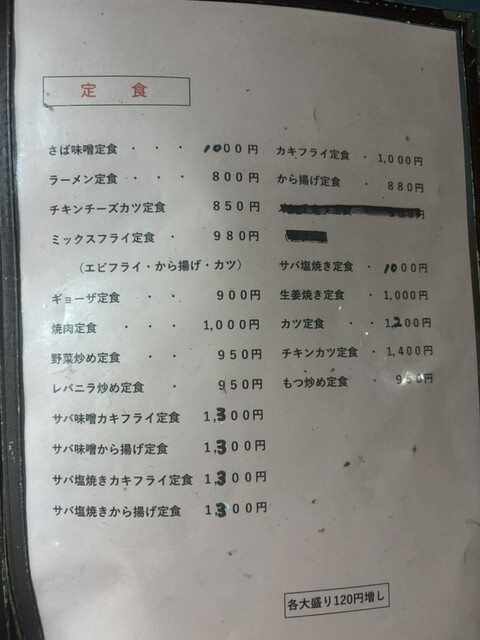 定 食
さば味噌定食 ・ ・ ・ 1000円
ラーメン定食 ・ ・ ・ 800円
チキンチーズカツ定食 850円
ミックスフライ定食 ・ 980円
(エビフライ・から揚げ・カツ)
ギョーザ定食 ・ ・ 900円
焼肉定食 ・ ・ ・ 1,000円
野菜炒め定食 ・ ・ 950円
レバニラ炒め定食 ・ 950円
サバ味噌カキフライ定食 1,300円
サバ味噌から揚げ定食 1,300円
サバ塩焼きカキフライ定食 1,300円
サバ塩焼きから揚げ定食 1,300円
カキフライ定食 ・ 1,000円
から揚げ定食 ・ 880円
サバ塩焼き定食 ・ 1000円
生姜焼き定食 ・ 1,000円
カツ定食 ・ ・ 1,200円
チキンカツ定食 ・ 1,400円
もつ炒め定食 ・ 950円
各大盛り120円増し